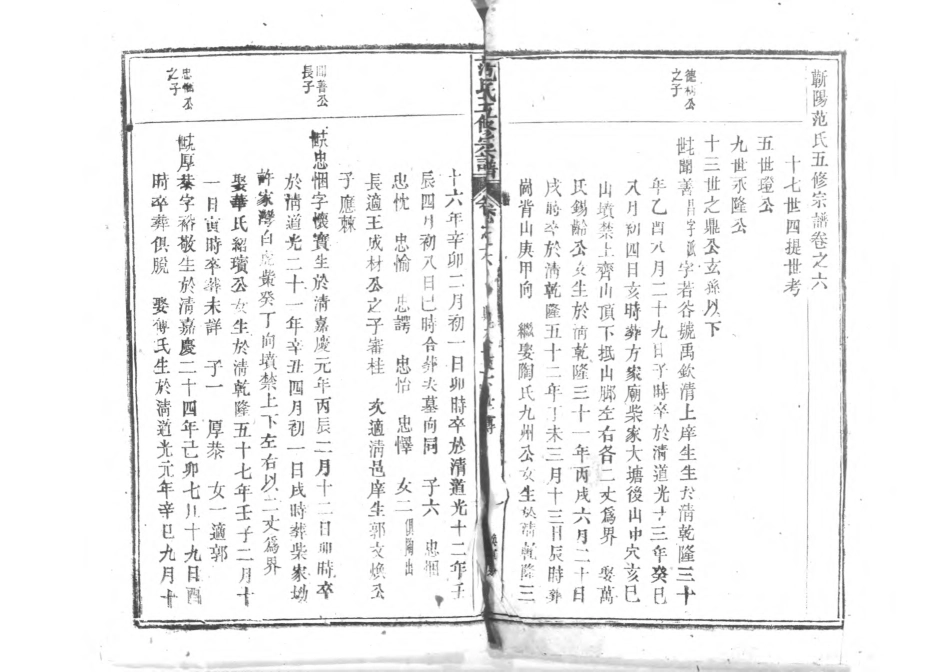 蘄陽范氏五修宗譜卷之六
十七世四提世考
五世瓊公
九世永隆公
十三世之鼎公玄孫以下
德 公
之子
聞善 字若谷號禹欽清上庠生生於清乾隆三十
年乙酉八月二十九日子時卒於清道光十三年癸巳
又月初四日亥時葬方家廟柴家大塘後山中穴亥巳
山墳禁上齊山頂下抵山腳左右各二丈爲界 娶萬
氏錫齡公女生於清乾隆三十一年丙戌六月二十日
戌時卒於清乾隆五十二年丁未三月十三日辰時葬
崗背山庚甲向 繼娶陶氏九州公女生於清乾隆三
范氏五修宗譜
十六年辛卯二月初一日卯時卒於清道光十二年壬
辰四月初八日巳時合葬夫墓向同 子六 忠悃
忠忱 忠愉 忠諤 忠怡 忠懌 女二俱陶出
長適王成材公之子審桂 次適清邑庠生郭文煥公
子應棘
聞善公
長子
忠悃字懷實生於清嘉慶元年丙辰二月十二日卯時卒
於清道光二十一年辛丑四月初一日戌時葬柴家坳
許家灣白虎 癸丁向墳禁上下左右以二丈爲界
娶華氏紹璸公女生於清乾隆五十七年壬子二月十
一日寅時卒葬未詳 子一 厚菾 女一適郭
忠悃公
之子
厚菾字裕敬生於清嘉慶二十四年己卯七月十九日酉
時卒葬俱脫 娶傅氏生於清道光元年辛巳九月十